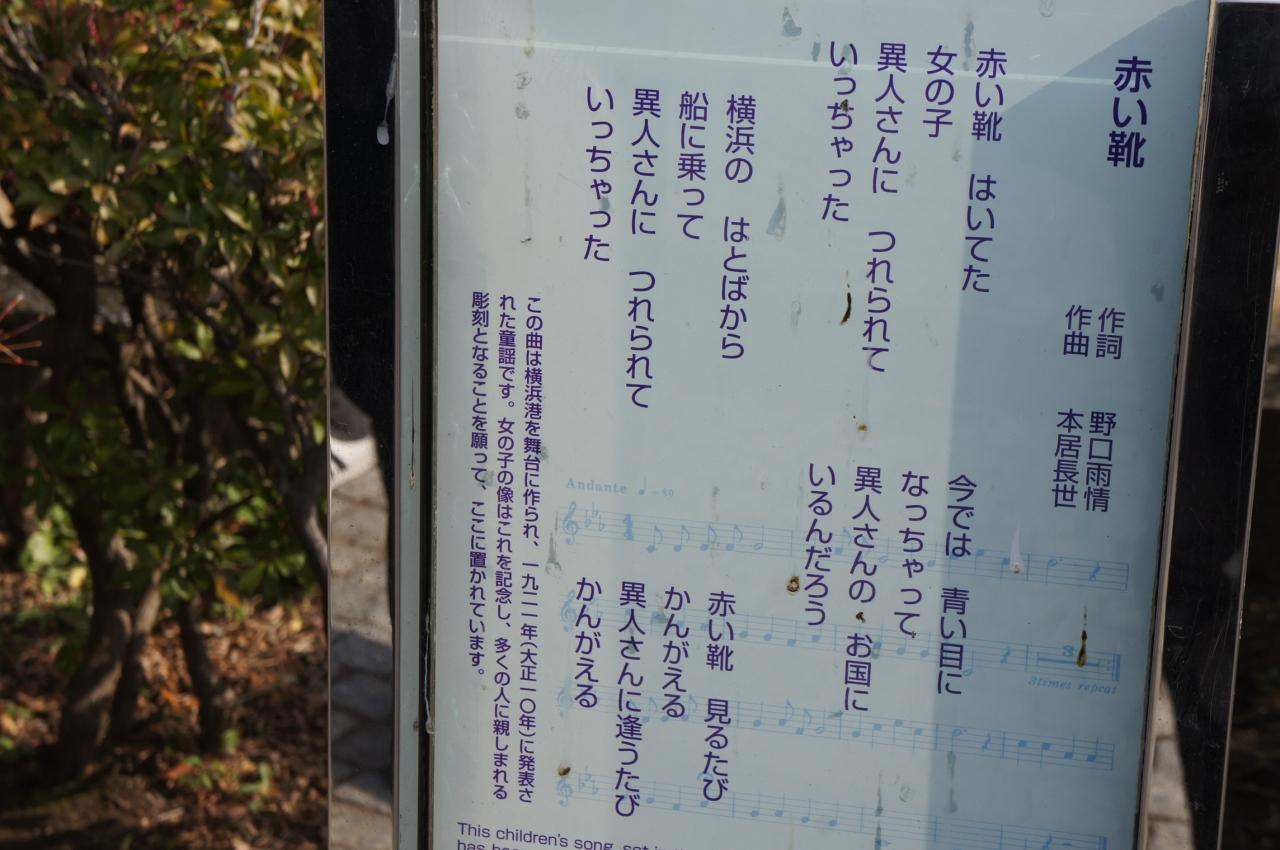 赤い靴
作詞　野口雨情
作曲　本居長世
赤い靴　はいてた
女の子
異人さんに　つれられて
いっちゃった
横浜の　はとばから
船に乗って
異人さんに　つれられて
いっちゃった
今では　青い目に
なっちゃって
異人さんの　お国に
いるんだろう
赤い靴　見るたび
かんがえる
異人さんに逢うたび
かんがえる
この曲は横浜港を舞台に作られ、一九二一年(大正一〇年)に発表さ
れた童謡です。女の子の像はこれを記念し、多くの人に親しまれる
彫刻となることを願って、ここに置かれています。
Andante ♩=80
3
3times repeat
This children's song, set
has